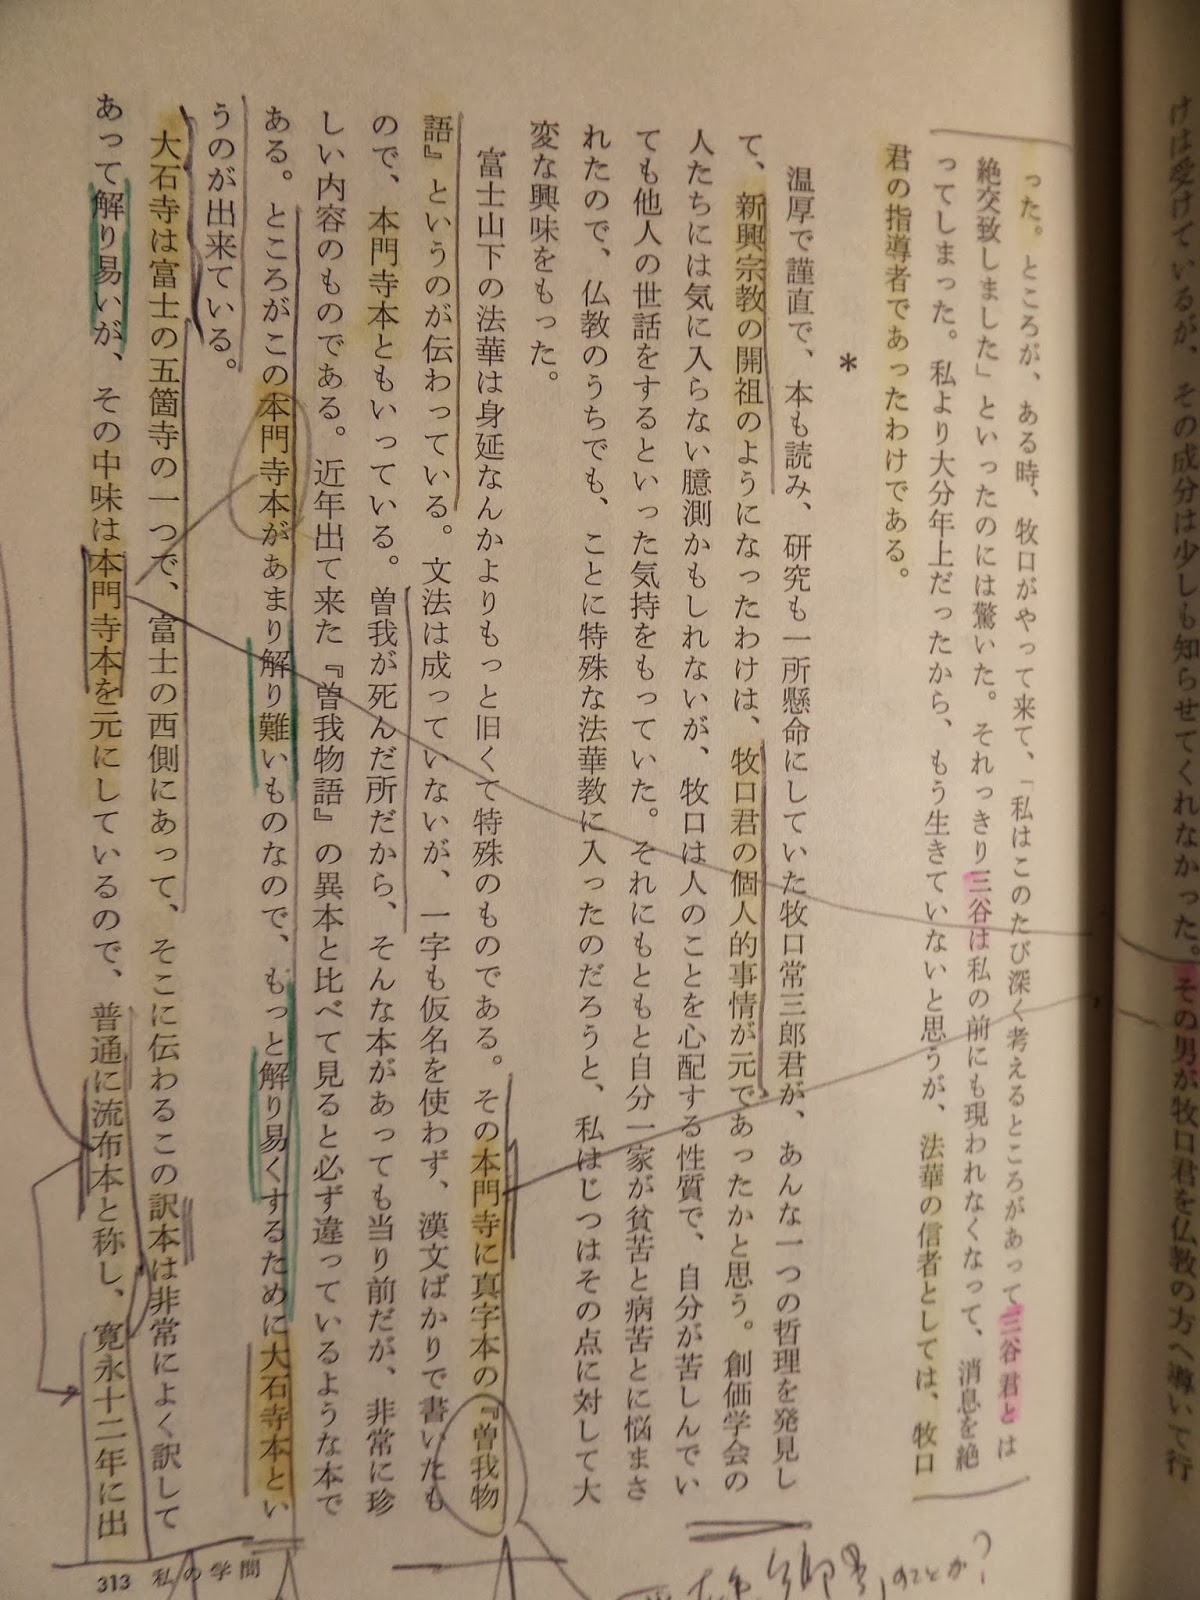 けは受けているが、その成分は少しも知らせてくれなかった。その男が牧口君を仏教の方へ導いて行
った。ところが、ある時、牧口がやって来て、「私はこのたび深く考えるところがあって三谷君とは
絶交致しました」といったのには驚いた。それっきり三谷は私の前にも現われなくなって、消息を絶
ってしまった。私より大分年上だったから、もう生きていないと思うが、法華の信者としては、牧口
君の指導者であったわけである。
*
温厚で謹直で、本も読み、研究も一所懸命にしていた牧口常三郎君が、あんな一つの哲理を発見し
て、新興宗教の開祖のようになったわけは、牧口君の個人的事情が元であったかと思う。創価学会の
人たちには気に入らない臆測かもしれないが、牧口は人のことを心配する性質で、自分が苦しんでい
ても他人の世話をするといった気持をもっていた。それにもともと自分一家が貧苦と病苦とに悩まさ
れたので、仏教のうちでも、ことに特殊な法華教に入ったのだろうと、私はじつはその点に対して大
変な興味をもった。
富士山下の法華は身延なんかよりもっと旧くて特殊のものである。その本門寺に真字本の『曽我物
語』というのが伝わっている。文法は成っていないが、一字も仮名を使わず、漢文ばかりで書いたも
ので、本門寺本ともいっている。曽我が死んだ所だから、そんな本があっても当り前だが、非常に珍
しい内容のものである。近年出て来た『曽我物語』の異本と比べて見ると必ず違っているような本で
ある。ところがこの本門寺本があまり解り難いものなので、もっと解り易くするために大石寺本とい
うのが出来ている。
大石寺は富士の五箇寺の一つで、富士の西側にあって、そこに伝わるこの訳本は非常によく訳して
あって解り易いが、その中味は本門寺本を元にしているので、普通に流布本と称し、寛永十二年に出
313 私の学問
のことか?